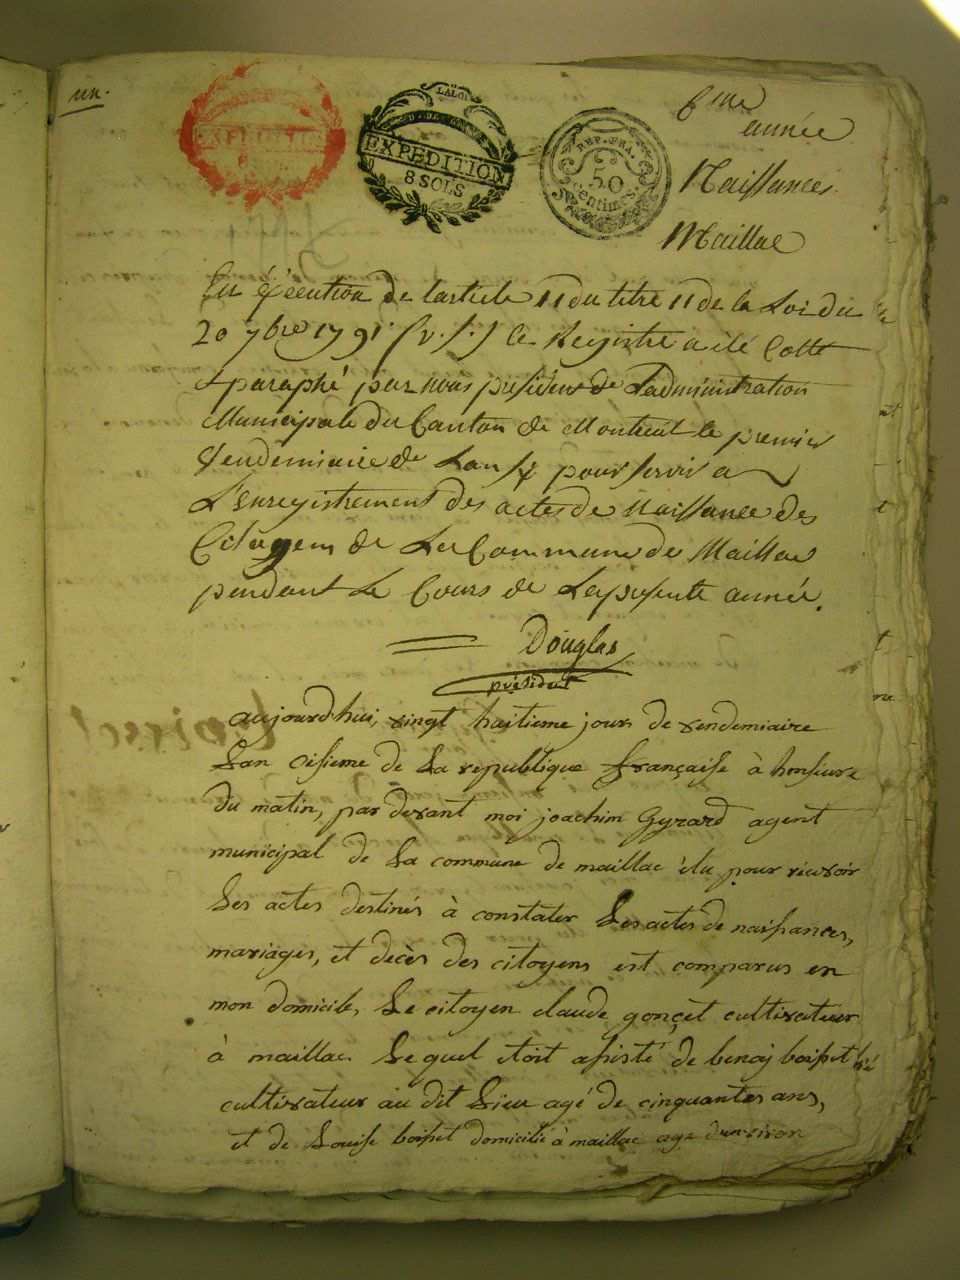 un.
EXPEDITION
LA LOI
EXPEDITION
8 SOLS
REP. FRA.
50
centimes.
6me
année
Naissances
Maillac
En éxécution de larticle 11 du titre 11 de la Loi du
20 7bre 1791 (v. s.) le Registre a été Cotté
& paraphé par nous président de Ladministration
Municipale du Canton de Montrevit le premier
Vendemiaire de Lan six pour servir a
L'enregistrement des actes de Naissance des
Citoyens de La Commune de Maillac
pendant Le Cours de La présente année.
Douglas
président
aujourdhui, vingt huitieme jours de vendemiaire
Lan sisieme de La république française à honseure
du matin, par devant moi joachim Gyrard agent
municipal de La commune de maillac élu pour récevoir
Les actes destinés à constater Les actes de naissances,
mariages, et decès des citoyens est comparus en
mon domicile, Le citoyen claude gonçet cultivateur
à maillac Le quel étoit assisté de benoj boisset
cultivateur au dit Lieu agé de cinquantes ans,
et de Louise boisset domicilié à maillac agé denviron